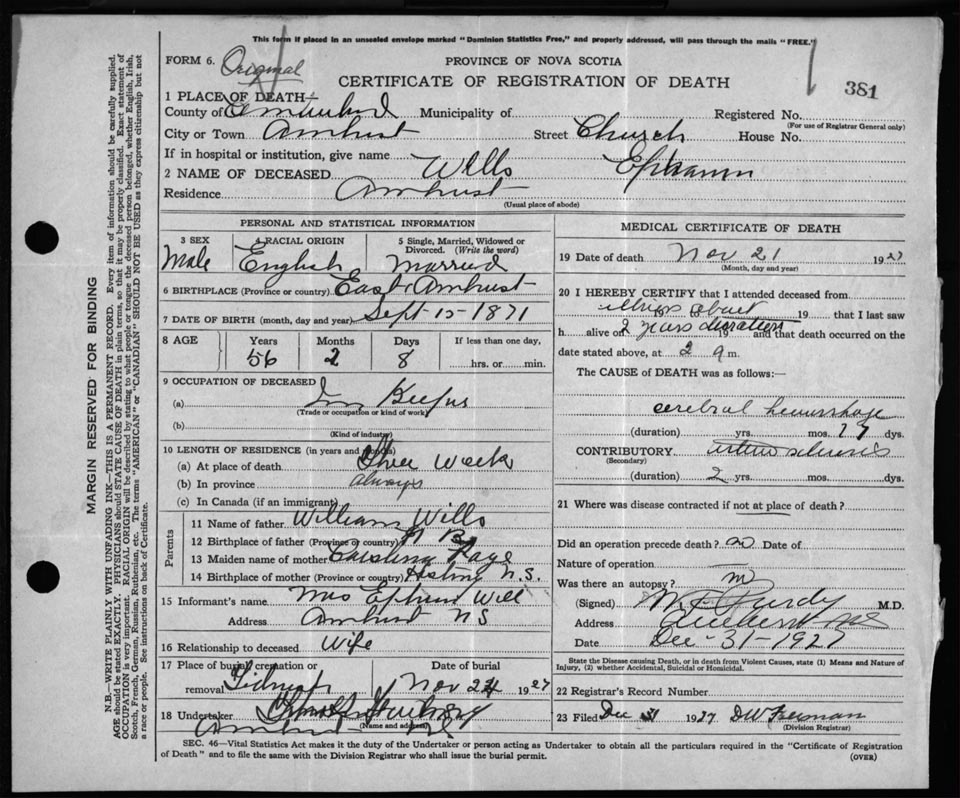 This form if placed in an unsealed envelope marked "Dominion Statistics Free," and properly addressed, will pass through the mails "FREE."
FORM 6.
Original
PROVINCE OF NOVA SCOTIA
CERTIFICATE OF REGISTRATION OF DEATH
381
1 PLACE OF DEATH—
County of Cumberland Municipality of Registered No.
(For use of Registrar General only)
City or Town Amherst Street Church House No.
If in hospital or institution, give name
2 NAME OF DECEASED Wills
Residence Amherst
(Usual place of abode)
MARGIN RESERVED FOR BINDING
N.B.—WRITE PLAINLY WITH UNFADING INK—THIS IS A PERMANENT RECORD. Every item of information should be carefully supplied.
AGE should be stated EXACTLY. PHYSICIANS should STATE CAUSE OF DEATH in plain terms, so that it may be properly classified. Exact statement of
OCCUPATION is very important. RACIAL ORIGIN will be described by stating to what people or tongue the deceased person belonged, whether English, Irish,
Scotch, French, German, Russian, Ruthenian, etc. The terms "AMERICAN" or "CANADIAN" SHOULD NOT BE USED as they express citizenship but not
a race or people. See instructions on back of Certificate.
PERSONAL AND STATISTICAL INFORMATION
3 SEX
Male
4 RACIAL ORIGIN
English
5 Single, Married, Widowed or
Divorced. (Write the word)
Married
6 BIRTHPLACE (Province or country) East Amherst
7 DATE OF BIRTH (month, day and year) Sept 1871
8 AGE
Years
56
Months
2
Days
8
If less than one day,
hrs. or min.
9 OCCUPATION OF DECEASED
(a)
(Trade or occupation or kind of work)
(b)
(Kind of industry)
10 LENGTH OF RESIDENCE (in years and months)
(a) At place of death Three Week
(b) In province always
(c) In Canada (if an immigrant)
Parents
11 Name of father William Wills
12 Birthplace of father (Province or country) N B
13 Maiden name of mother
14 Birthplace of mother (Province or country) N.S.
15 Informant's name Mrs Will
Address Amherst NS
16 Relationship to deceased Wife
17 Place of burial, cremation or
removal
Date of burial
Nov 1927
18 Undertaker
(Name and address)
Amherst
MEDICAL CERTIFICATE OF DEATH
19 Date of death Nov 21 1927
(Month, day and year)
20 I HEREBY CERTIFY that I attended deceased from
about 19 that I last saw
h alive on 2 years duration 19 and that death occurred on the
date stated above, at 2 m.
The CAUSE OF DEATH was as follows:—
cerebral hemorrhage
(duration) yrs. mos. dys.
CONTRIBUTORY
(Secondary)
(duration) 2 yrs. mos. dys.
21 Where was disease contracted if not at place of death?
Did an operation precede death? no Date of
Nature of operation
Was there an autopsy? no
(Signed) Purdy M.D.
Address Amherst NS
Date Dec-31-1927
State the Disease causing Death, or in death from Violent Causes, state (1) Means and Nature of
Injury, (2) whether Accidental, Suicidal or Homicidal.
22 Registrar's Record Number
23 Filed Dec 31 1927 DW Freeman
(Division Registrar)
SEC. 46—Vital Statistics Act makes it the duty of the Undertaker or person acting as Undertaker to obtain all the particulars required in the "Certificate of Registration
of Death" and to file the same with the Division Registrar who shall issue the burial permit.
(OVER)